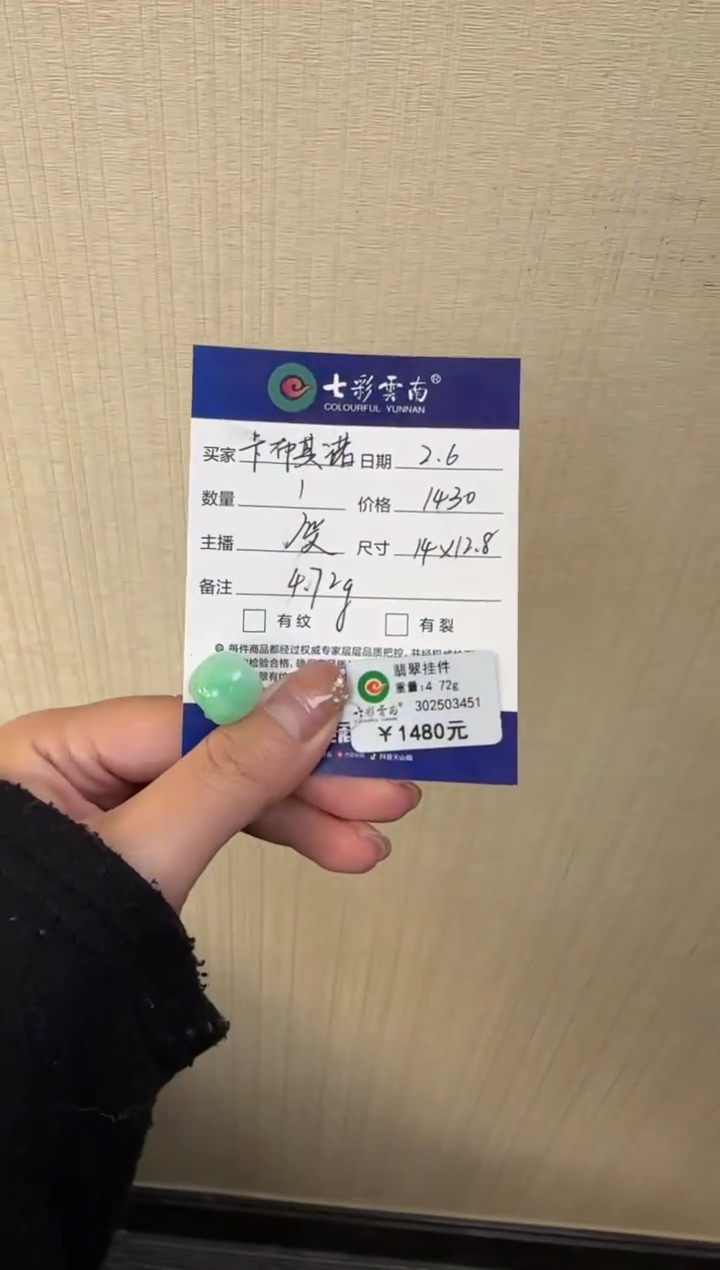 七彩雲南®
COLOURFUL YUNNAN
买家 卡布其诺 日期 2.6
数量 1 价格 1430
主播 度 尺寸 14x12.8
备注 4.72g
有纹 有裂
每件商品都经过权威专家层层品质把控，并经权威检
检验合格，确
翠有纹
翡翠挂件
重量:4 72g
七彩雲南®
302503451
¥1480元
抖音天山翡